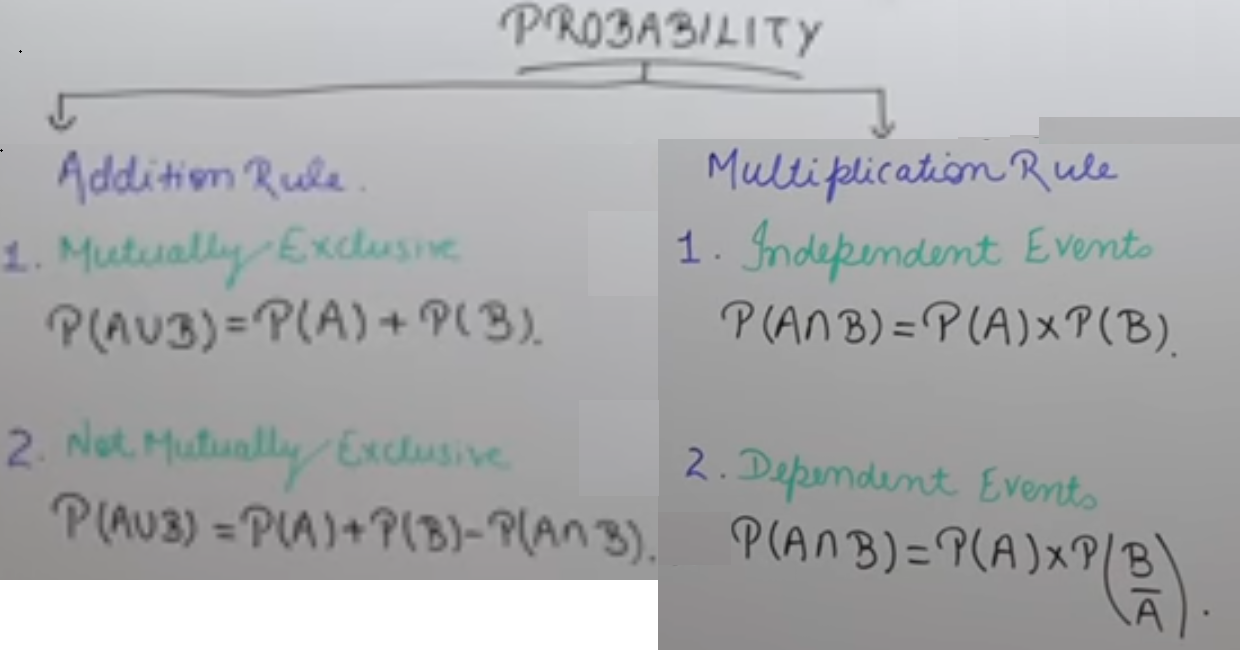 PROBABILITY
Addition Rule.
1. Mutually Exclusive
P(A∪B) = P(A) + P(B).
2. Not Mutually Exclusive
P(A∪B) = P(A) + P(B) - P(A∩B).
Multiplication Rule
1. Independent Events
P(A∩B) = P(A) x P(B).
2. Dependent Events
P(A∩B) = P(A) x P(B/A).